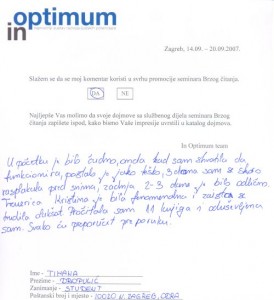 in optimum
Zagreb, 14.09. – 20.09.2007.
Slažem se da se moj komentar koristi u svrhu promocije seminara Brzog čitanja.
DA NE
Najljepše Vas molimo da svoje dojmove sa službenog dijela seminara Brzog
čitanja zapišete ispod, kako bismo Vaše impresije uvrstili u katalog dojmova.
In Optimum team
U početku je bilo čudno, onda kad sam shvatila da
funkcionira, postalo je jako teško, 3 dana sam se skoro
rasplakala pred svima, zadnja 2-3 dana je bilo odlično.
Trenerica Kristina je bila fenomenalna i zaista se
trudila oko nas. Pročitala sam 11 knjiga i oduševljena
sam. Svako ću preporučit preporuku.
Ime - TIHANA
Prezime -
Zanimanje - STUDENT
Poštanski broj i mjesto - 10020 N. ZAGREB, ODRA